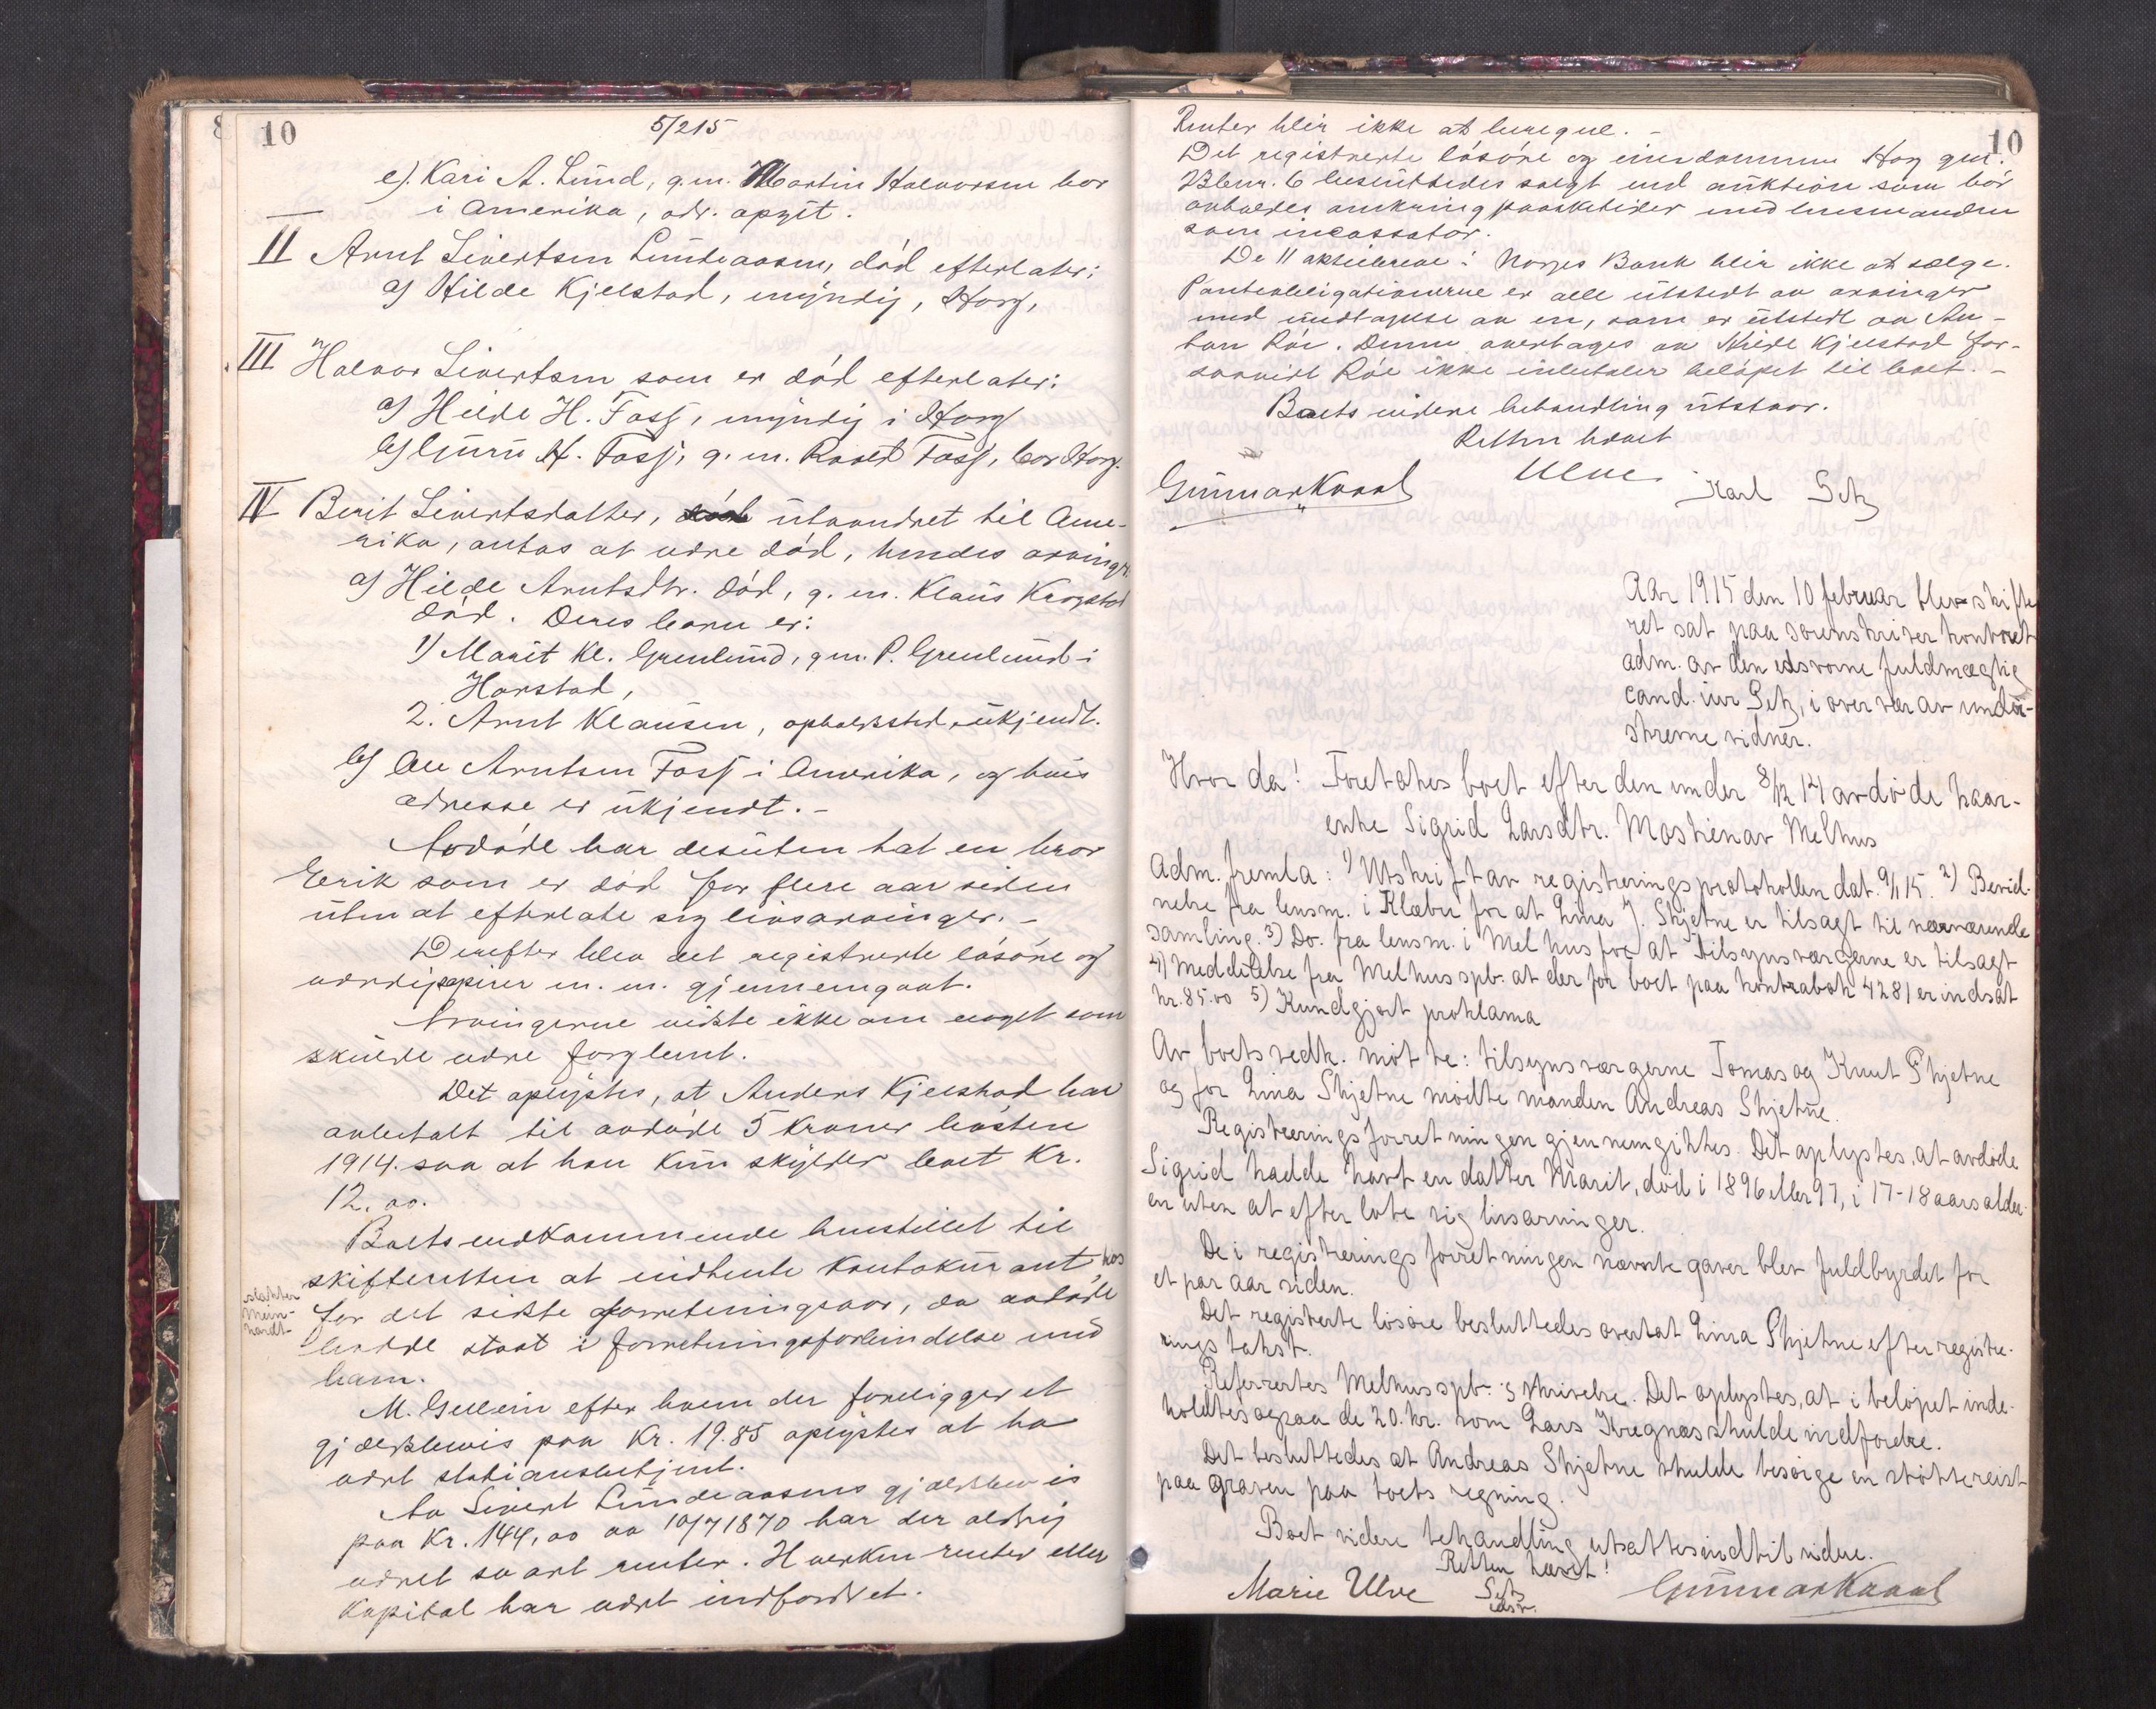 10
5/2 15
e). Kari A. Lund, g.m. Martin Halvorsen bor
i Amerika, adr. opgit.
II Arnt Sivertsen Lundeaasen, död efterlater:
a) Hilde Kjelstad, myndig, Horg,
III Halvor Sivertsen som er död efterlater:
a) Hilde H. Foss, myndig i Horg
b) Guru H. Foss, g.m. Foss, bor Horg.
IV Berit Sivertsdatter, utvandret til Ame-
rika, antas at være död, hendes arvinger
a) Hilde Arntsdtr. död, g.m. Klaus Krogstad
död. Deres barn er:
1) Marit Kl. Grenlund, g.m. P. Grenlund i
Harstad,
2. Arnt Klausen, opholdssted ukjendt.
b) Ole Arntsen Foss i Amerika, og hvis
adresse er ukjendt. -
Avdöde har desuten hat en bror
Eerik som er död for flere aar siden
uten at efterlate sig livsarvinger. -
Derefter blev det registrerte lösöre og
værdipapirer m.m. gjennemgaat.
Arvingerne visste ikke om noget som
skulde være forglemt.
Det oplystes, at Anders Kjelstad har
avbetalt til avdöde 5 kroner hösten
1914. saa at han kun skylder boet Kr.
12. oo.
Boets vedkommende henstillet til
skifteretten at indhente kontokurant hos
slakter
Mein-
hardt
for det sidste forretningsaar, da avdöde
hadde staat i forretningsforbindelse med
ham.
M. Gullein efter hvem der foreligger et
gjeldsbevis paa Kr. 19.85 oplystes at ha
været stationsbetjent.
Av Sivert Lundeaasens gjeldsbevis
paa Kr. 144,oo av 10/7 1870 har der aldrig
været svart renter. Hverken renter eller
kapital har været indfordret.
10
Renter blir ikke at beregne. -
Det registrerte lösöre og eiendommen Hog gnr.
23 bnr. 6 besluttedes solgt ved auktion som bör
avholdes omkring paasketider med lensmanden
som incassator.
De 11 aktiebreve i Norges Bank blir ikke at sælge.
Panteobligationerne er alle utstedt av arvinger
med undtagelse av en, som er utstedt av An-
ton Röe. Denne overtages av Hilde Kjelstad for-
saavidt Röe ikke indbetaler belöpet til boet. -
Boets videre behandling utstaar.
Retten hævet
Gunnar Kvaal Ulve. Karl Setz
Aar 1915 den 10 februar blev skifte
ret sat paa sorenskriverkontoret
adm. av den edsvorne fuldmægtig
cand. iur Setz, i overvær av under-
skrevne vidner.
Hvor da! Foretokes boet efter den under 8/12 14 avdöde kaar-
enke Sigrid Larsdtr. Mostien av Melhus
Adm. fremla: 1) Utskrift av registreringsprotokollen dat. 9/1 15. 2) Bevid-
nelse fra lensm. i Klæbu for at Lina J. Skjetne er tilsagt til nærværende
samling. 3) Do. fra lensm. i Melhus for at tilsynsværgerne er tilsagt
4) Meddelelse fra Melhus spb. at der for boet paa kontrabok 4281 er indsat
kr. 85.oo 5) Kundgjort proklama
Av boets vedk. mötte: tilsynsværgerne Tomas og Knut Skjetne
og for Lina Skjetne mödte manden Andreas Skjetne.
Registreringsforretningen gjennemgikkes. Det oplystes, at avdöde
Sigrid hadde havt en datter Marit, död i 1896 eller 97, i 17-18 aars alder-
en uten at efterlate sig livsarvinger.
De i registreringsforretningen nævnte gaver blev fuldbyrdet for
et par aar siden.
Det registerte lösöre besluttedes overtat Lina Skjetne efter registre-
ringstakst.
Refererertes Melhus spb.'s skrivelse. Det oplystes, at i belöpet inde-
holdtes ogsaa de 20. kr. som Lars Kregnes skulde indfordre.
Det besluttedes at Andreas Skjetne skulde besörge en stötte reist
paa graven paa boets regning.
Boet videre behandling utsattes indtil videre.
Retten hævet!
Marie Ulve Setz
edsv. Gunnar Kvaal